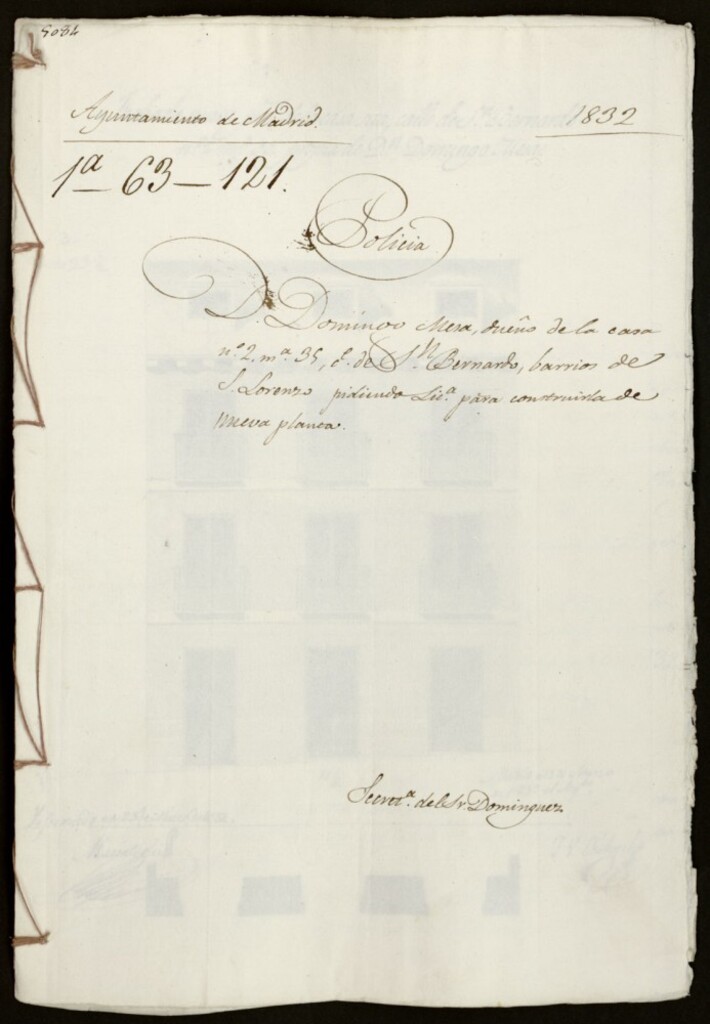 5084
Ayuntamiento de Madrid. 1832
1ª-63-121.
Policia
D.n Domingo Mesa, dueño de la casa
n.º 2, m.ª 35, c.e de S.n Bernardo, barrios de
S. Lorenzo pidiendo Lic.ª para construirla de
nueva planta.
Secret.ª del Sr. Dominguez